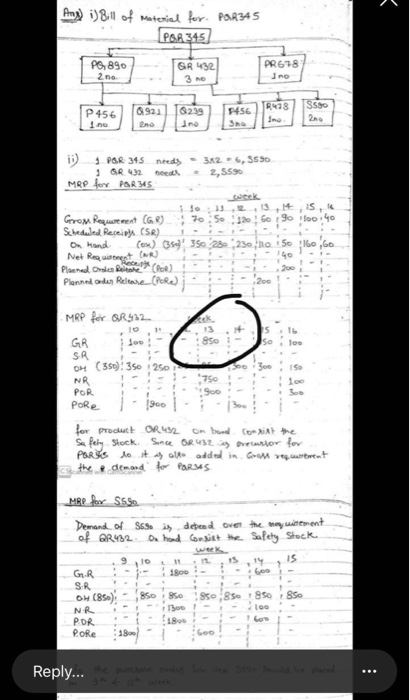 Ans) i) Bill of Material for PQR345
PQR 345
PQ,890 QR 432 PR678
2 no. 3 no 1 no
P456 Q921 Q239 P456 R478 S590
1 no 2no 1no 3no 1no. 2no
ii) 1 PQR 345 needs = 3x2 = 6, S590
1 QR 432 needs = 2, S590
MRP for PQR345
week
10 11 12 13 14 15 16
Gross Requirement (GR) 70 50 120 60 90 100 40
Scheduled Receipts (SR)
On Hand (OH) 350 280 230 110 50 160 60
Net Requirement (NR) 40
Planned Order Receipt (POR) 200
Planned order Release (PORe) 200
MRP for QR432
week
10 11 13 14 15 16
GR 100 850 50 100
SR
OH (350) 350 250 300 300 150
NR 750 100
POR 900 300
PORe 900 300
for product QR432 on hand consist the
Safety Stock. Since QR432 is precursor for
PQR345 so it is also added in Gross requirement
the demand for PQR345
MRP for S590
Demand of S590 is depend over the requirement
of QR432. On hand Consist the Safety Stock
week
9 10 11 12 13 14 15
G.R 1800 600
S.R
OH (850) 850 850 850 850 850 850
N.R 1300 100
P.OR 1800 600
P.ORe 1800 600
Reply...